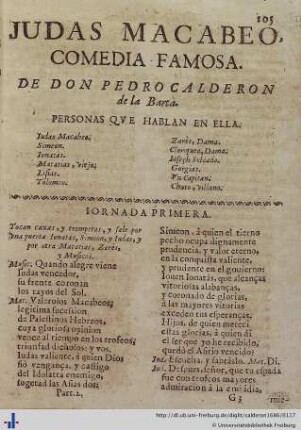 105
JUDAS MACABEO,
COMEDIA FAMOSA.
DE DON PEDRO CALDERON
de la Barca.
PERSONAS QVE HABLAN EN ELLA.
Iudas Macabeo.
Simeon.
Ionatas.
Matatias, viejo.
Lisias.
Tolomeo.
Zarès, Dama.
Cloriquea, Dama.
Ioseph Soldado.
Gorgias.
Vn Capitan.
Chato, villano.
IORNADA PRIMERA.
Tocan caxas, y trompetas, y sale por
una puerta Ionatas, Simeon, y Iudas, y
por otra Matatias, Zarès,
y Musicos.
Music. Quando alegre viene
Iudas vencedor,
su frente coronan
los rayos del Sol.
Mat. Valerosos Macabeos,
legitima sucession
de Palestinos Hebreos,
cuya gloriosa opinion
vence al tiempo en los trofeos;
triunfad dichosos; y vos,
Iudas valiente, à quien Dios
fió vengança, y castigo
del Idolatra enemigo,
sugetad las Asias dos:
Part. 2.
Simeon, à quien el tierno
pecho ocupa dignamente
prudencia, y valor eterno,
en la conquista valiente,
y prudente en el govierno:
Ionatàs, que alcanças
vitoriosas alabanças,
y coronado de glorias,
à las mayores vitorias
excedes tus esperanças.
Hijos, de quien mereci
estas glorias, à quien dì
el ser que yo he recibido,
quedò el Assirio vencido?
Iud. Escucha, y sabràslo. Mat. Dì.
Iud. Despues, señor, que tu espada
fue con trofeos mayores
admiracion à la embidia,
G 3
http://dl.ub.uni-freiburg.de/diglit/calderon1686/0127
© Universitätsbibliothek Freiburg